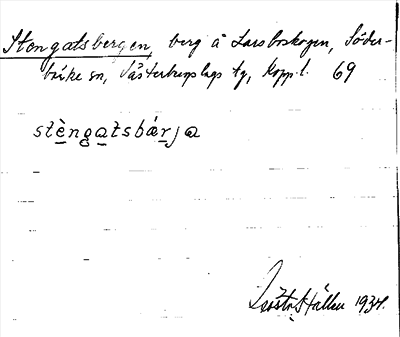 Stengatsbergen, berg å Larsboskogen, Söder-
bärke sn, Västerbergslags tg, Kopp. l. 69
stèngatsbárja
Hällen 1934.